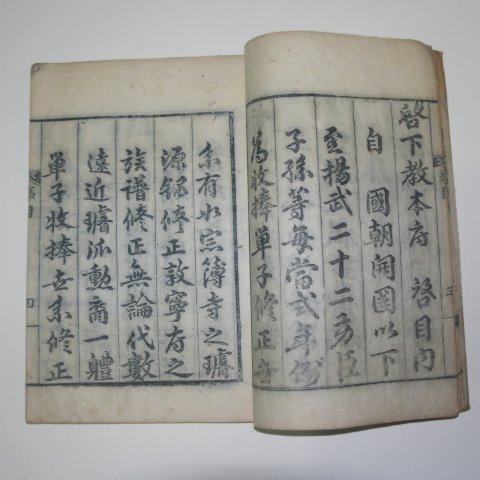 啓下教本府 啓目內
自 國朝開國以下
至揚武二十二功臣
子孫等每當式年例
爲收捧單子修正世
系有如宗簿寺之璿
源錄修正敦寧府之
族譜修正無論代數
遠近璿派勳裔一軆
單子收捧世系修正
啓目
四